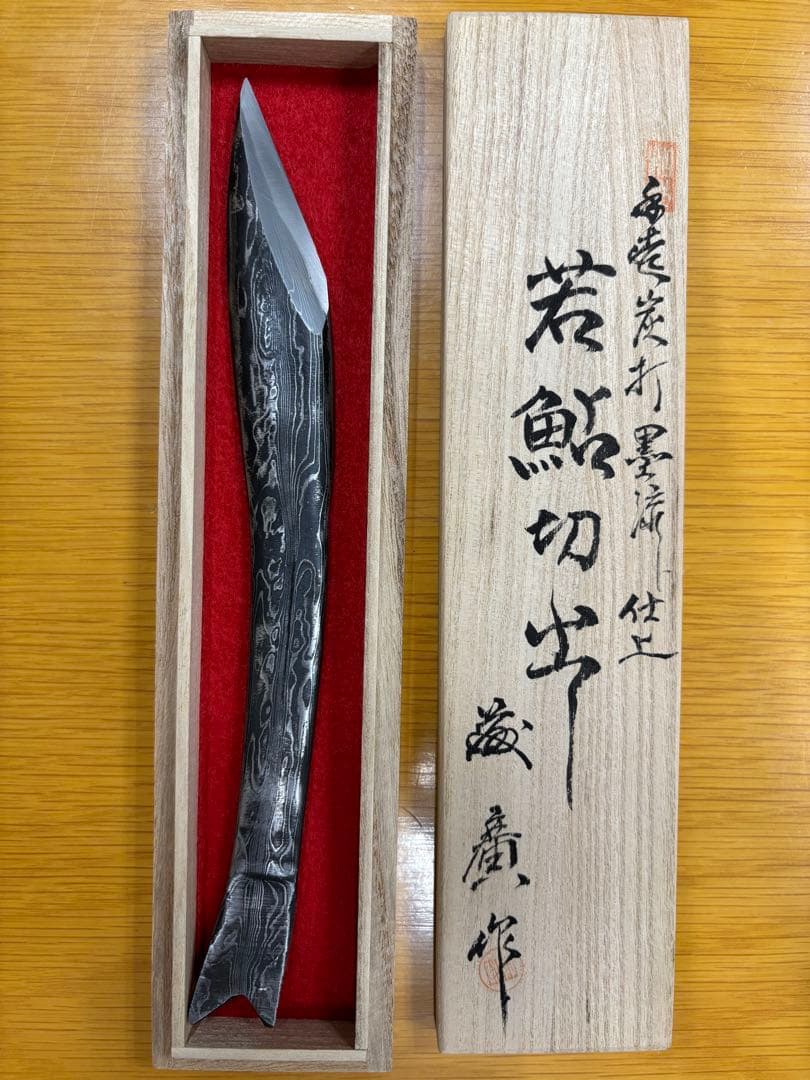 手造炭打墨流し仕上
若鮎切出し
廣作